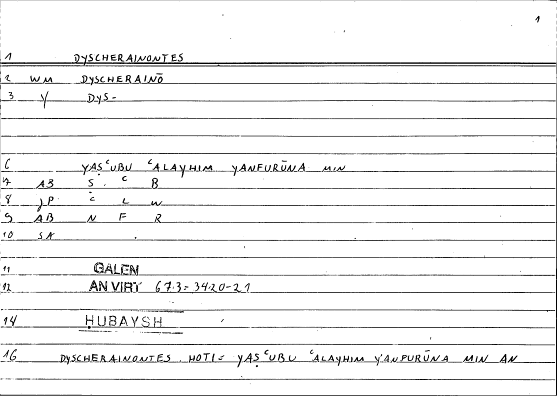 1
1 DYSCHERAINONTES
2 WM DYSCHERAINŌ
3 Y DYS-
6 YAṢᶜUBU ᶜALAYHIM YANFURŪNA MIN
7 AB Ṣ ᶜ B
8 JP ᶜ L W
9 AB N F R
10 SK
11 GALEN
12 AN VIRT 67.3 = 34.20-21
14 ḤUBAYSH
16 DYSCHERAINONTES . HOTI = YAṢᶜUBU ᶜALAYHIM YANFURŪNA MIN AN